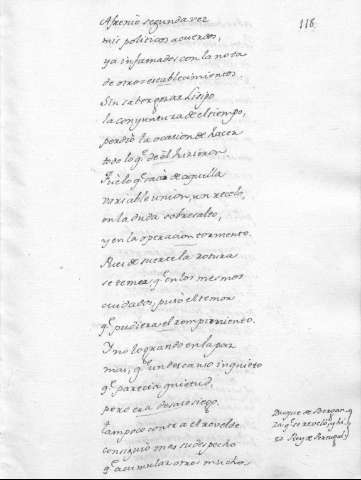 116.
Afrenio segunda vez
mis politicos acuerdos,
ya infamados con la nota
de otros establecimientos.
Sin saber gozar
la conjuntura del tiempo,
perdió la ocasion de hacer
todo lo q.e de él hizieron.
q.e saca de aquella
variable union, un rezelo,
en la duda sobresalto,
y en la operacion tormento.
Pues de suerte la rotura
se teme, q.e en los mesmos
cuidados, puso el temor
q.e pudiera el rompimiento.
Y no logrando en la paz
mas, q.e un descanso inquieto
q.e parecia quietud,
pero era desasosiego.
tampoco contra el revelde
consiguió mas su despecho
q.e acumular otros muchos
Duque de Bergan
za q.e se reveló, y hi
zo Rey de Portugal